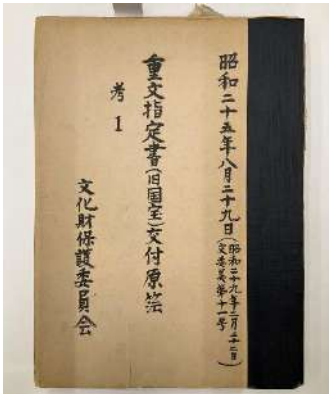 昭和二十五年八月二十九日
(昭和二十九年二月二十二日
文委美第十一号)
重文指定書(旧国宝)交付原簿
考1
文化財保護委員会